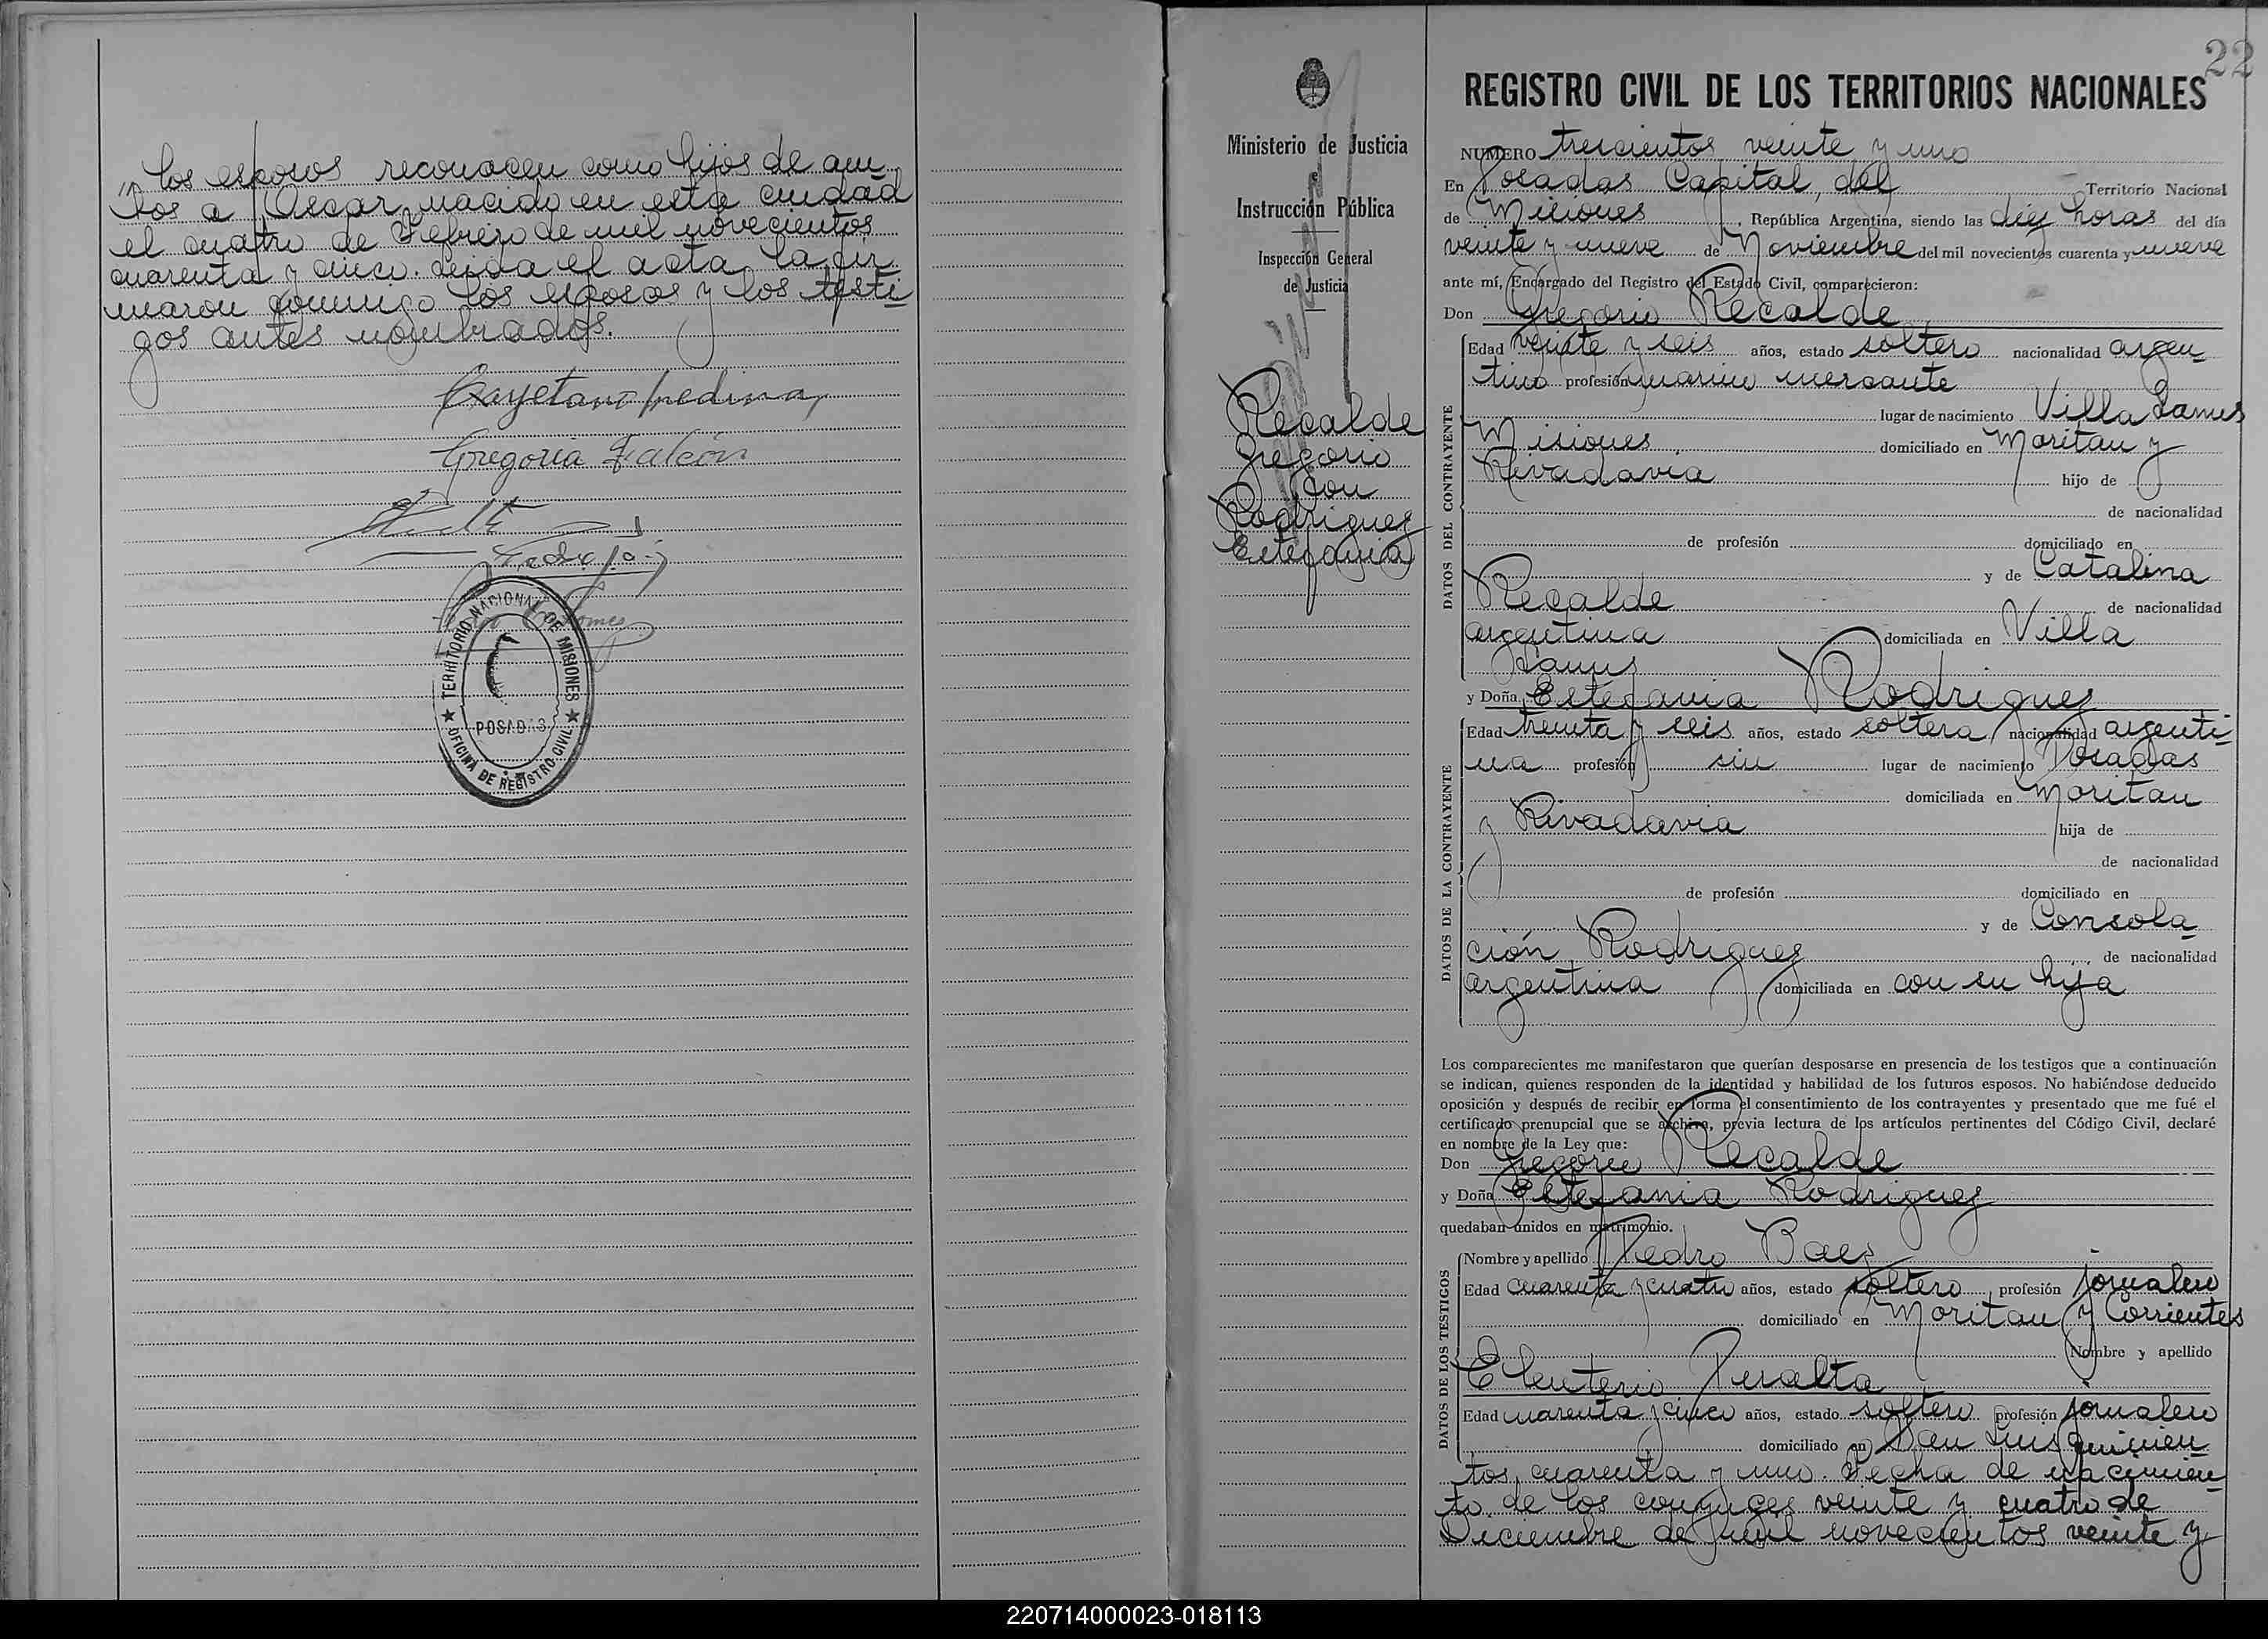 Los esposos reconocen como hijos de am-
bos a Oscar nacido en esta ciudad
el cuatro de Febrero de mil novecientos
cuarenta y cinco. Leida el acta, la fir-
maron conmigo los esposos y los testi
gos antes nombrados.
Cayetano Medina
Gregoria Falcón
TERRITORIO NACIONAL DE MISIONES
POSADAS
OFICINA DE REGISTRO CIVIL
22
Ministerio de Justicia
e
Instrucción Pública
Inspección General
de Justicia
Recalde
Gregorio
con
Rodriguez
Estefania
REGISTRO CIVIL DE LOS TERRITORIOS NACIONALES
NUMERO trescientos veinte y uno
En Posadas Capital del Territorio Nacional
de Misiones, República Argentina, siendo las diez horas del día
veinte y nueve de Noviembre del mil novecientos cuarenta y nueve
ante mí, Encargado del Registro del Estado Civil, comparecieron:
Don Gregorio Recalde
DATOS DEL CONTRAYENTE
Edad veinte y seis años, estado soltero nacionalidad argen-
tino profesión marino mercante
lugar de nacimiento Villa Lanus
Misiones domiciliado en Moritan y
Rivadavia hijo de
de nacionalidad
de profesión domiciliado en
y de Catalina
Recalde de nacionalidad
argentina domiciliada en Villa
Lanus
y Doña Estefania Rodriguez
DATOS DE LA CONTRAYENTE
Edad treinta y seis años, estado soltera nacionalidad argenti-
na profesión sin lugar de nacimiento Posadas
domiciliada en Moritan
y Rivadavia hija de
de nacionalidad
de profesión domiciliado en
y de Consola-
ción Rodriguez de nacionalidad
argentina domiciliada en con su hija
Los comparecientes me manifestaron que querían desposarse en presencia de los testigos que a continuación
se indican, quienes responden de la identidad y habilidad de los futuros esposos. No habiéndose deducido
oposición y después de recibir en forma el consentimiento de los contrayentes y presentado que me fué el
certificado prenupcial que se archiva, previa lectura de los artículos pertinentes del Código Civil, declaré
en nombre de la Ley que:
Don Gregorio Recalde
y Doña Estefania Rodriguez
quedaban unidos en matrimonio.
DATOS DE LOS TESTIGOS
Nombre y apellido Pedro Baez
Edad cuarenta y cuatro años, estado soltero profesión jornalero
domiciliado en Moritan y Corrientes
Nombre y apellido
Eleuterio Peralta
Edad cuarenta y cinco años, estado soltero profesión jornalero
domiciliado en San Luis quinien
tos cuarenta y uno. Fecha de nacimien
to de los conyuges veinte y cuatro de
Diciembre de mil novecientos veinte y
220714000023-018113